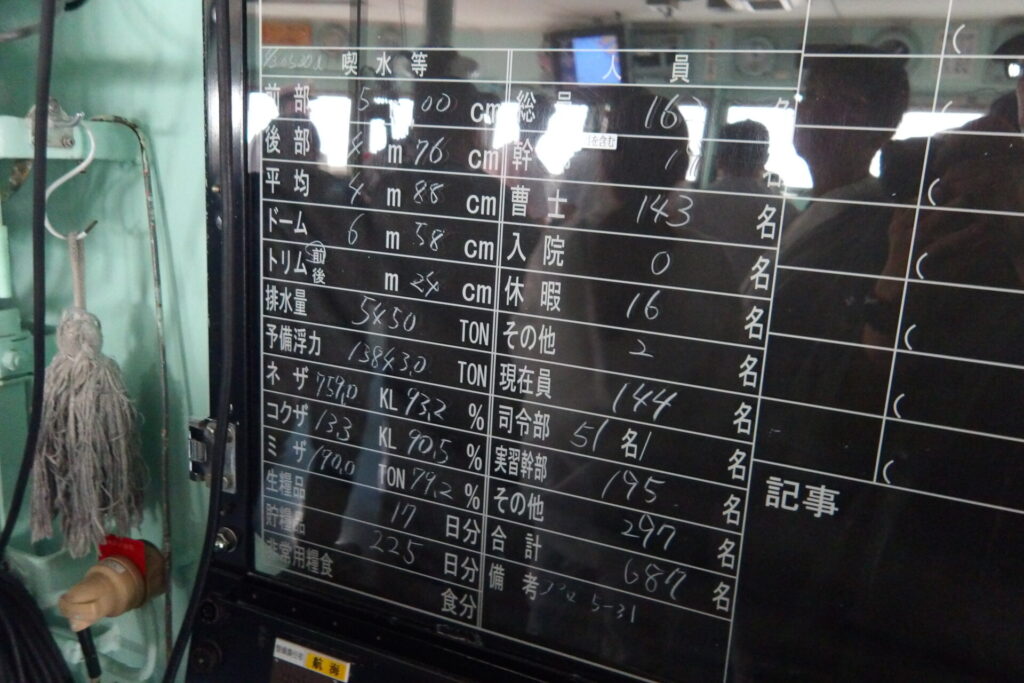 喫水等
前部 5 00 cm
後部 4 m 76 cm
平均 4 m 88 cm
ドーム 6 m 58 cm
トリム 前後 m 24 cm
排水量 5450 TON
予備浮力 13843.0 TON
ネザ 759.0 KL 93.2 %
コクザ 133 KL 90.5 %
ミザ 190.0 TON 79.2 %
生糧品 17 日分
貯糧品 225 日分
非常用糧食 食分
人員
総員 名
を含む
幹 名
曹士 143 名
入院 0 名
休暇 16 名
その他 2 名
現在員 144 名
司令部 51 名 1 名
実習幹部 195 名
その他 297 名
合計 687 名
備考 5-31
記事
航海